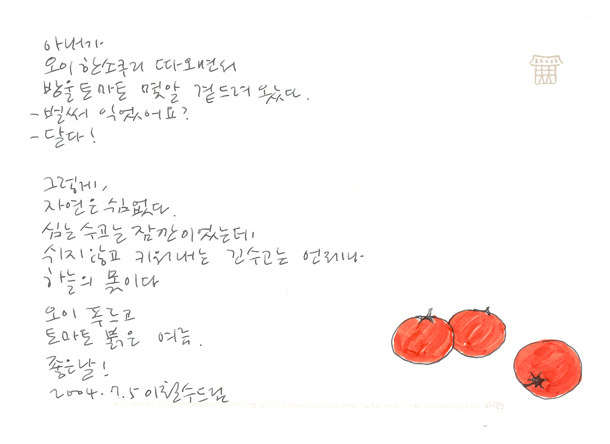 아내가
오이 한소쿠리 따오면서
방울토마토 몇알 곁드려 왔다.
- 벌써 익었어요?
- 달다!
그렇게,
자연은 쉼없다.
심는 수고는 잠깐이었는데
쉬지않고 키워내는 긴수고는 언제나
하늘의 몫이다
오이 푸르고
토마토 붉은 여름.
좋은날!
2004.7.5 이철수드림